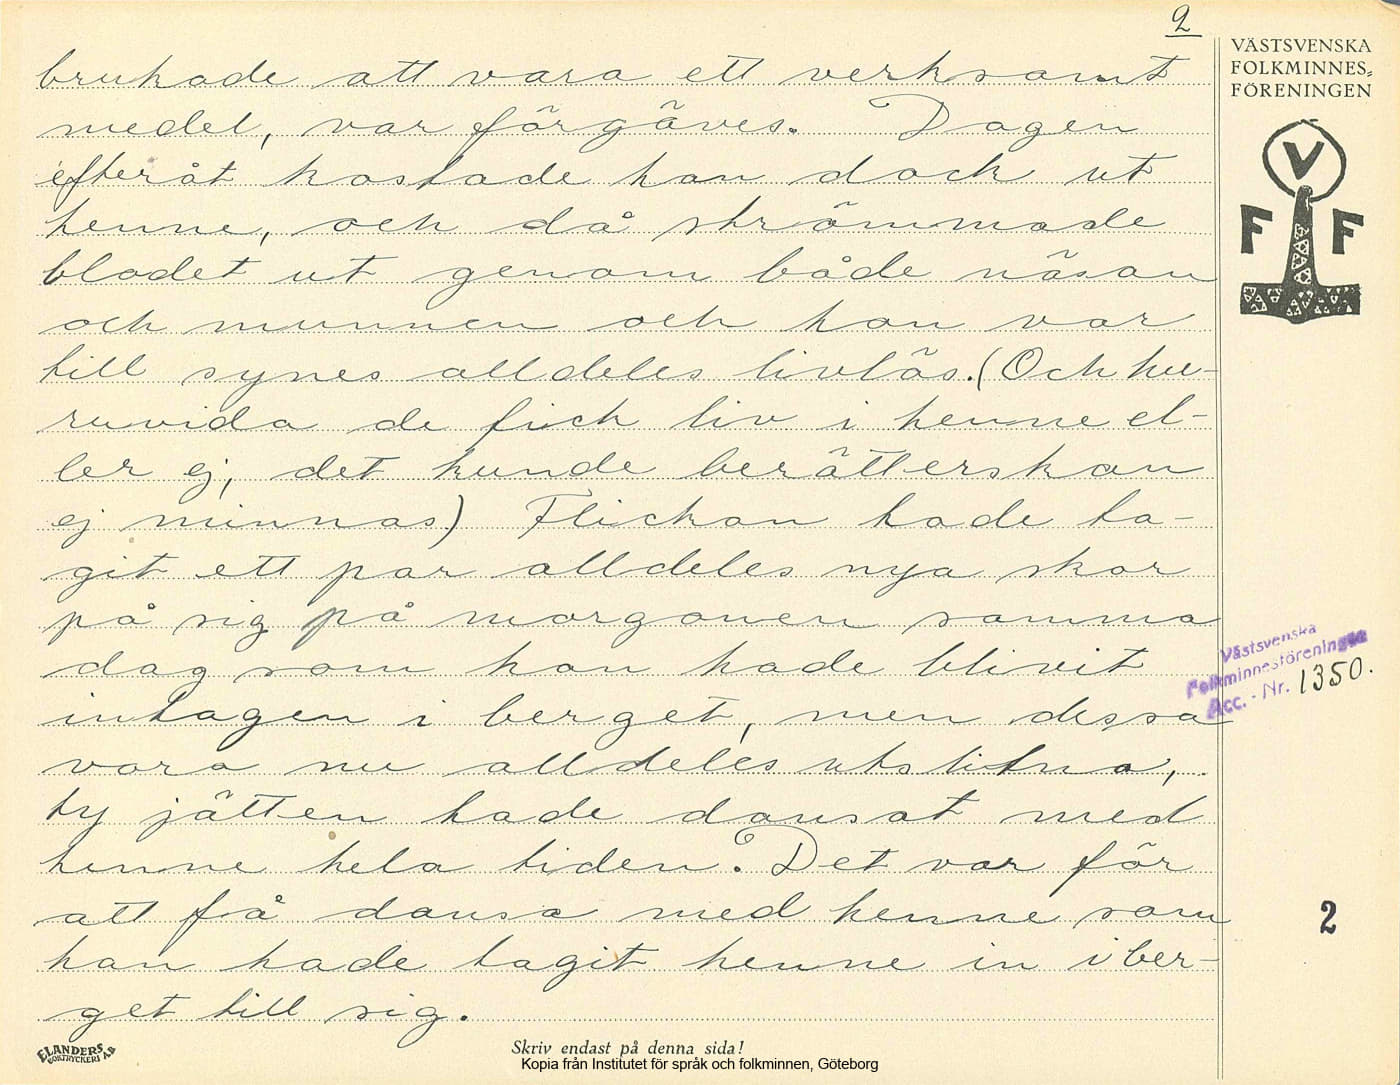 2
VÄSTSVENSKA
FOLKMINNES=
FÖRENINGEN
V
F F
brukade att vara ett verksamt
medel, var förgäves. Dagen
efteråt kastade han dock ut
henne, och då strömmade
blodet ut genom både näsan
och munnen och hon var
till synes alldeles livlös. (Och hu-
ruvida de fick liv i henne el-
ler ej, det kunde berätterskan
ej minnas) Flickan hade ta-
git ett par alldeles nya skor
på sig på morgonen samma
dag som hon hade blivit
intagen i berget, men dessa
voro nu alldeles utslitna,
ty jätten hade dansat med
henne hela tiden. Det var för
att få dansa med henne som
han hade tagit henne in i ber-
get till sig.
Västsvenska
Folkminnesföreningen
Acc. - Nr. 1350.
2
ELANDERS
BOKTRYCKERI A.B
Skriv endast på denna sida!
Kopia från Institutet för språk och folkminnen, Göteborg